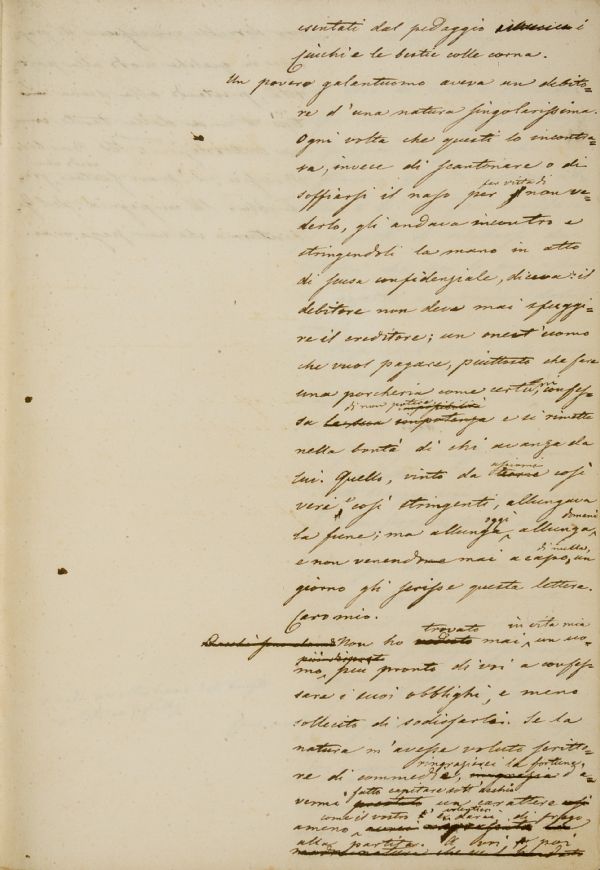 esentati dal pedaggio i
Ciuchi e le bestie colle corna.
Un povero galantuomo aveva un debito=
re d'una natura singolarissima.
Ogni volta che questi lo incontra=
va, invece di scantonare o di
soffiarsi il naso per far vista di non ve=
derlo, gli andava incontro e
stringendoli la mano in atto
di scusa confidenziale, diceva: il
debitore non deve mai sfuggi=
re il creditore; un onest'uomo
che vuol pagare, piuttosto che fare
una porcheria come certuni, confes=
di non potere impossibilità
sa la sua impotenza e si rimette
nella bontà di chi avanza da
lui. Quello, vinto da assiomi così
veri e così stringenti, allungava
la fune; ma allunga oggi, allunga domani,
e non venendone mai a capo di nulla, un
giorno gli scrisse questa lettera.
Caro mio.
trovato in vita mia
Non ho veduto mai, un uo=
mo, più pronto di voi a confes=
sare i suoi obblighi, e meno
sollecito di sodisfarli. Se la
natura m'avesse voluto scritto=
ringrazierei la fortuna,
re di commedie, d'a=
fatto capitare sott'occhio
vermi un carattere
come il vostro e volentieri
ameno di darei di frego,
alla partita. A voi poi